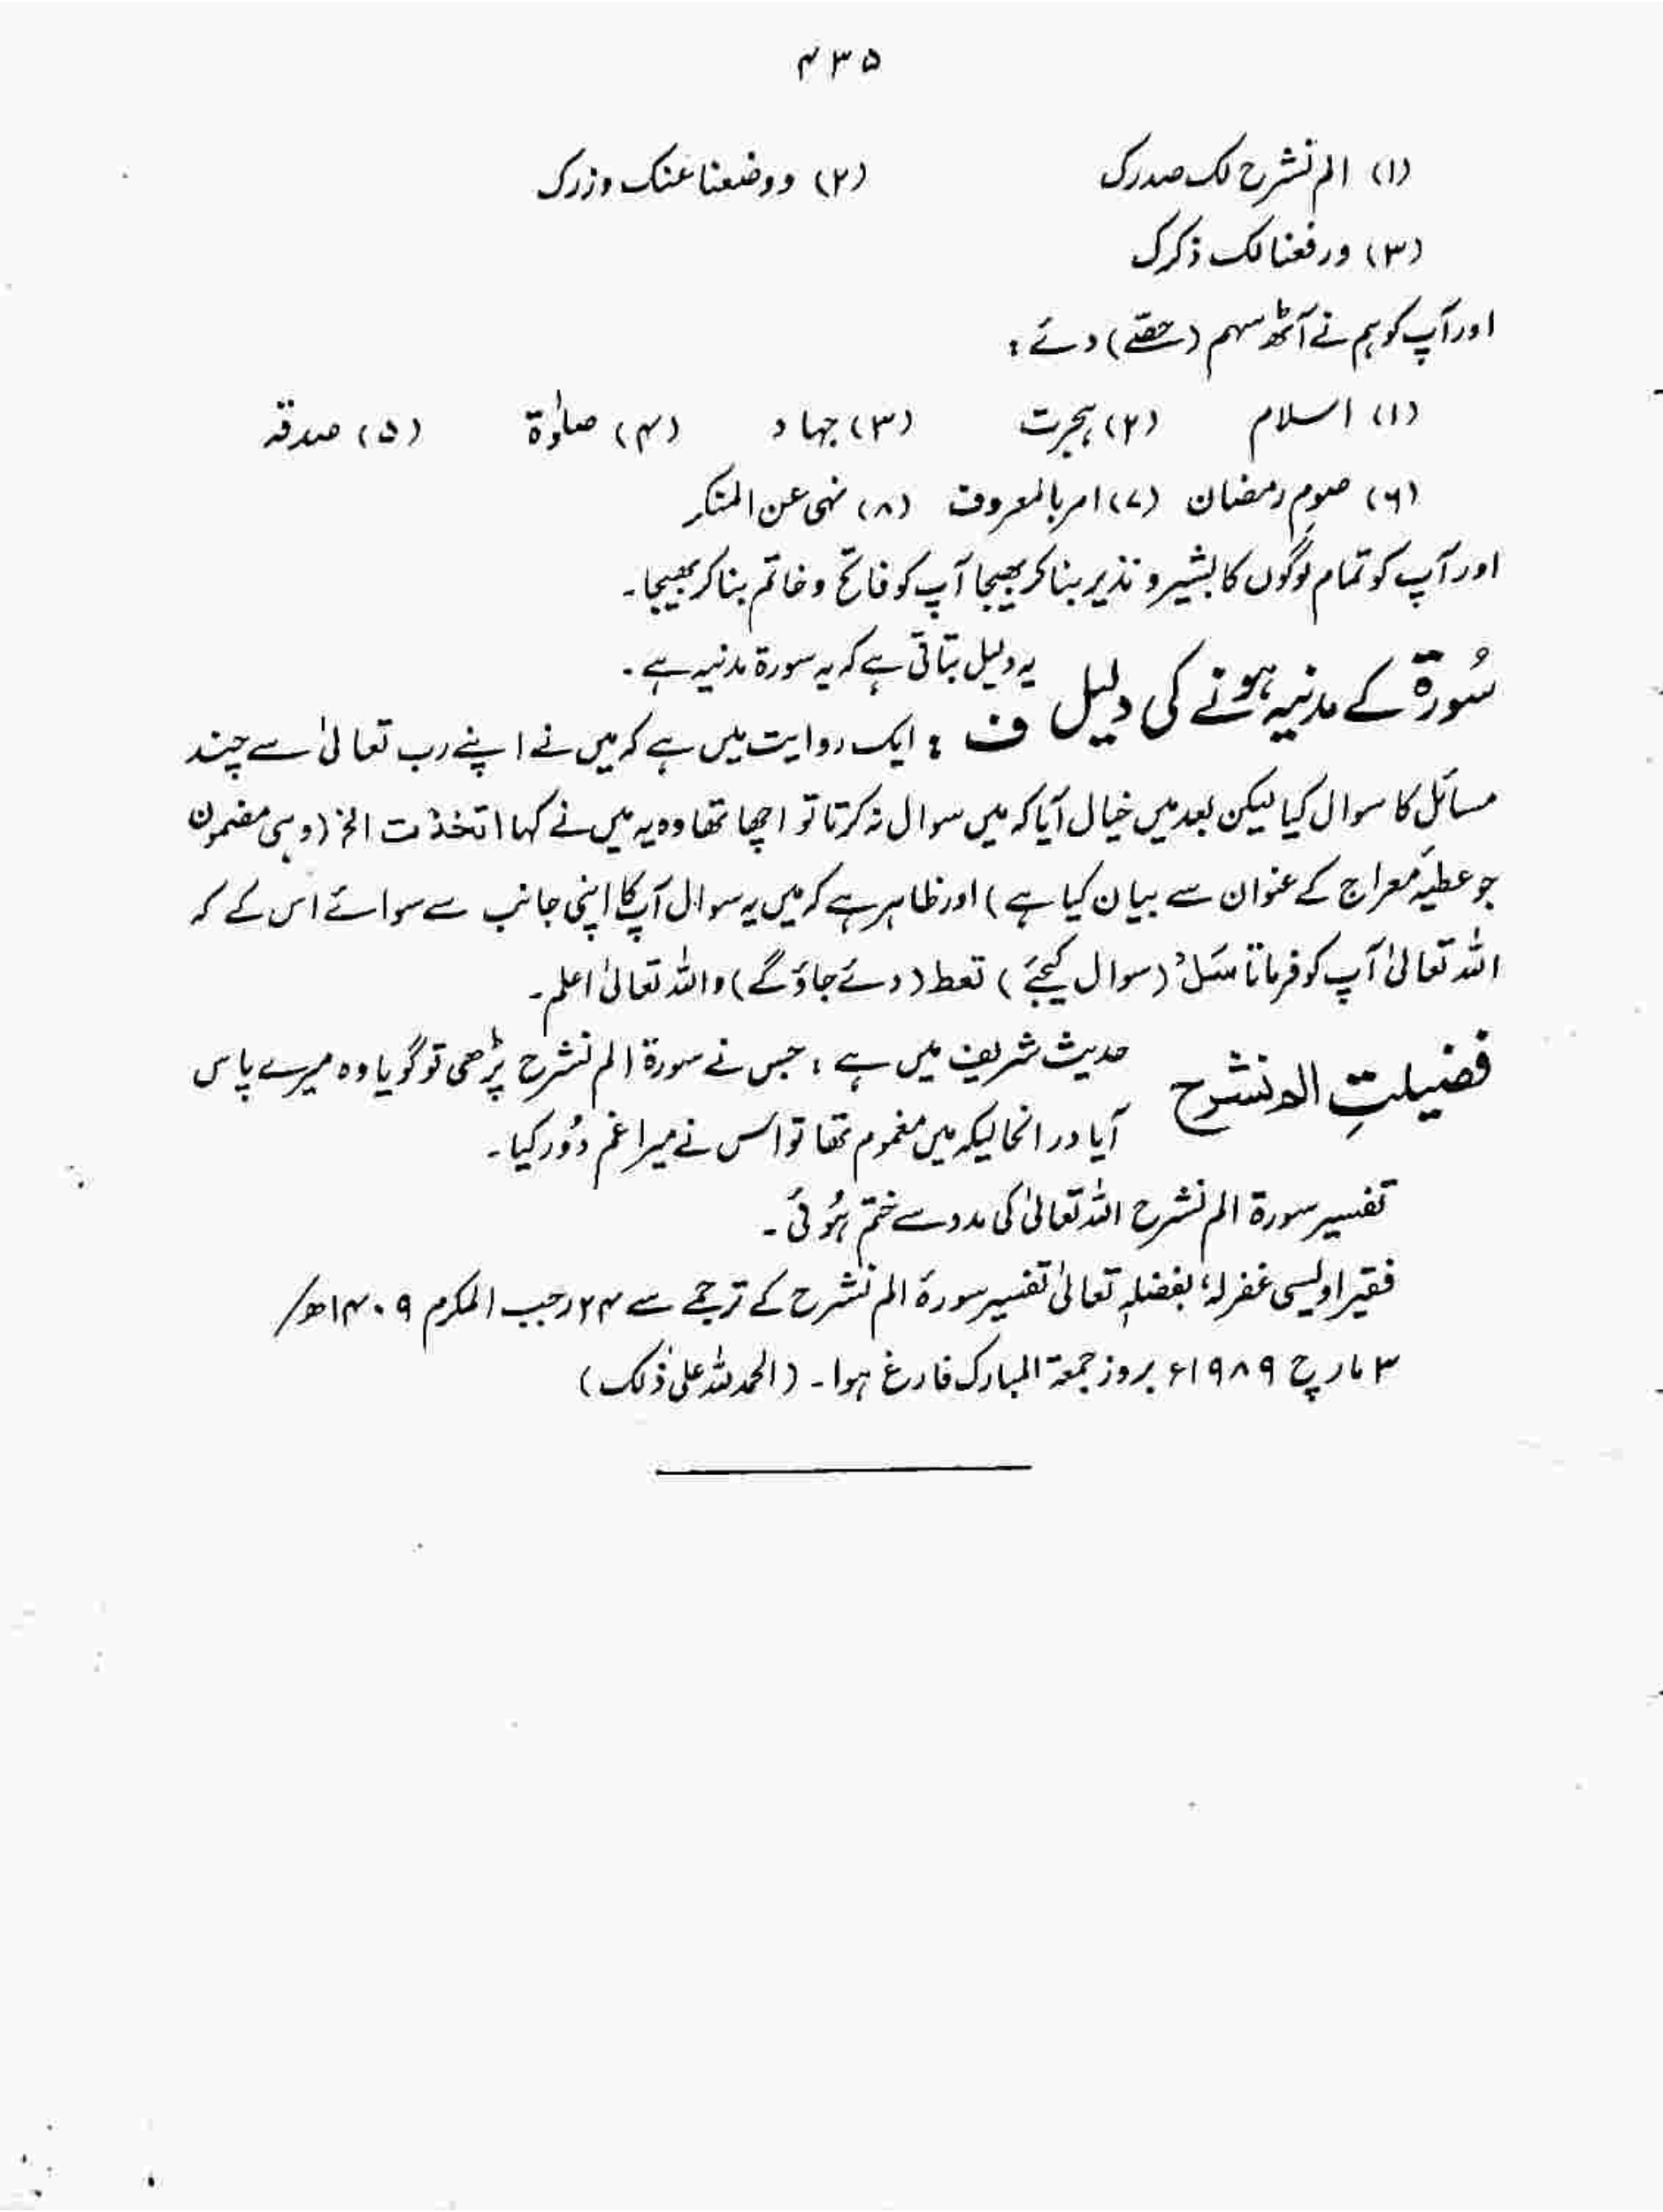 ۴۳۵
(۱) الم نشرح لک صدرک (۲) ووضعنا عنک وزرک
(۳) ورفعنا لک ذکرک
اور آپ کو ہم نے آٹھ سہم (حصّے) دئے:
(۱) اسلام (۲) ہجرت (۳) جہاد (۴) صلوٰۃ (۵) صدقہ
(۶) صومِ رمضان (۷) امر بالمعروف (۸) نہی عن المنکر
اور آپ کو تمام لوگوں کا بشیر و نذیر بنا کر بھیجا آپ کو فاتح و خاتم بنا کر بھیجا۔
سُورۃ کے مدنیہ ہونے کی دلیل یہ دلیل بتاتی ہے کہ یہ سورۃ مدنیہ ہے۔
ف : ایک روایت میں ہے کہ میں نے اپنے رب تعالیٰ سے چند
مسائل کا سوال کیا لیکن بعد میں خیال آیا کہ میں سوال نہ کرتا تو اچھا تھا وہ یہ میں نے کہا اتخذت الخ (وہی مضمون
جو عطیۂ معراج کے عنوان سے بیان کیا ہے) اور ظاہر ہے کہ میں یہ سوال آپ کا اپنی جانب سے سوائے اس کے کہ
اللہ تعالیٰ آپ کو فرماتا سَلْ (سوال کیجئے) تعط (دئے جاؤ گے) واللہ تعالیٰ اعلم۔
فضیلتِ الم نشرح حدیث شریف میں ہے : جس نے سورۃ الم نشرح پڑھی تو گویا وہ میرے پاس
آیا درانحالیکہ میں مغموم تھا تو اس نے میرا غم دُور کیا۔
تفسیر سورۃ الم نشرح اللہ تعالیٰ کی مدد سے ختم ہُوئی۔
فقیر اویسی غفرلہٗ بفضلہٖ تعالیٰ تفسیر سورۂ الم نشرح کے ترجمے سے ۲۴ رجب المکرم ۱۴۰۹ھ/
۳ مارچ ۱۹۸۹ء بروز جمعۃ المبارک فارغ ہوا۔ (الحمد للہ علیٰ ذٰلک)